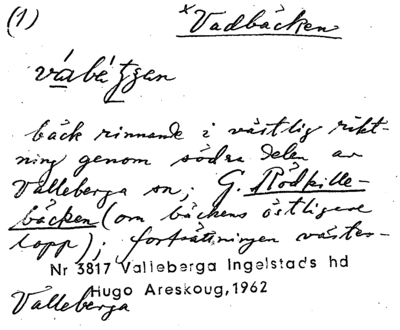 (1)
x Vadbäcken
vábätjen
bäck rinnande i västlig rikt-
ning genom södra delen av
Valleberga sn; G. Rödkille-
bäcken (om bäckens östligare
lopp); fortsättningen väster-
Nr 3817 Valleberga Ingelstads hd
Hugo Areskoug, 1962
Valleberga